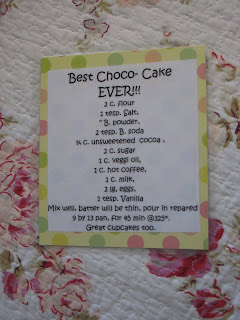 Best Choco- Cake
EVER!!!
2 c. flour
1 tesp. Salt,
" B. powder,
2 tesp. B. soda
¾ c. unsweetened cocoa ,
2 c. sugar
1 c. veggi oil,
1 c. hot coffee,
1 c. milk,
2 lg. eggs,
1 tesp. Vanilla
Mix well, batter will be thin, pour in repared
9 by 13 pan, for 45 min @325*.
Great cupcakes too.